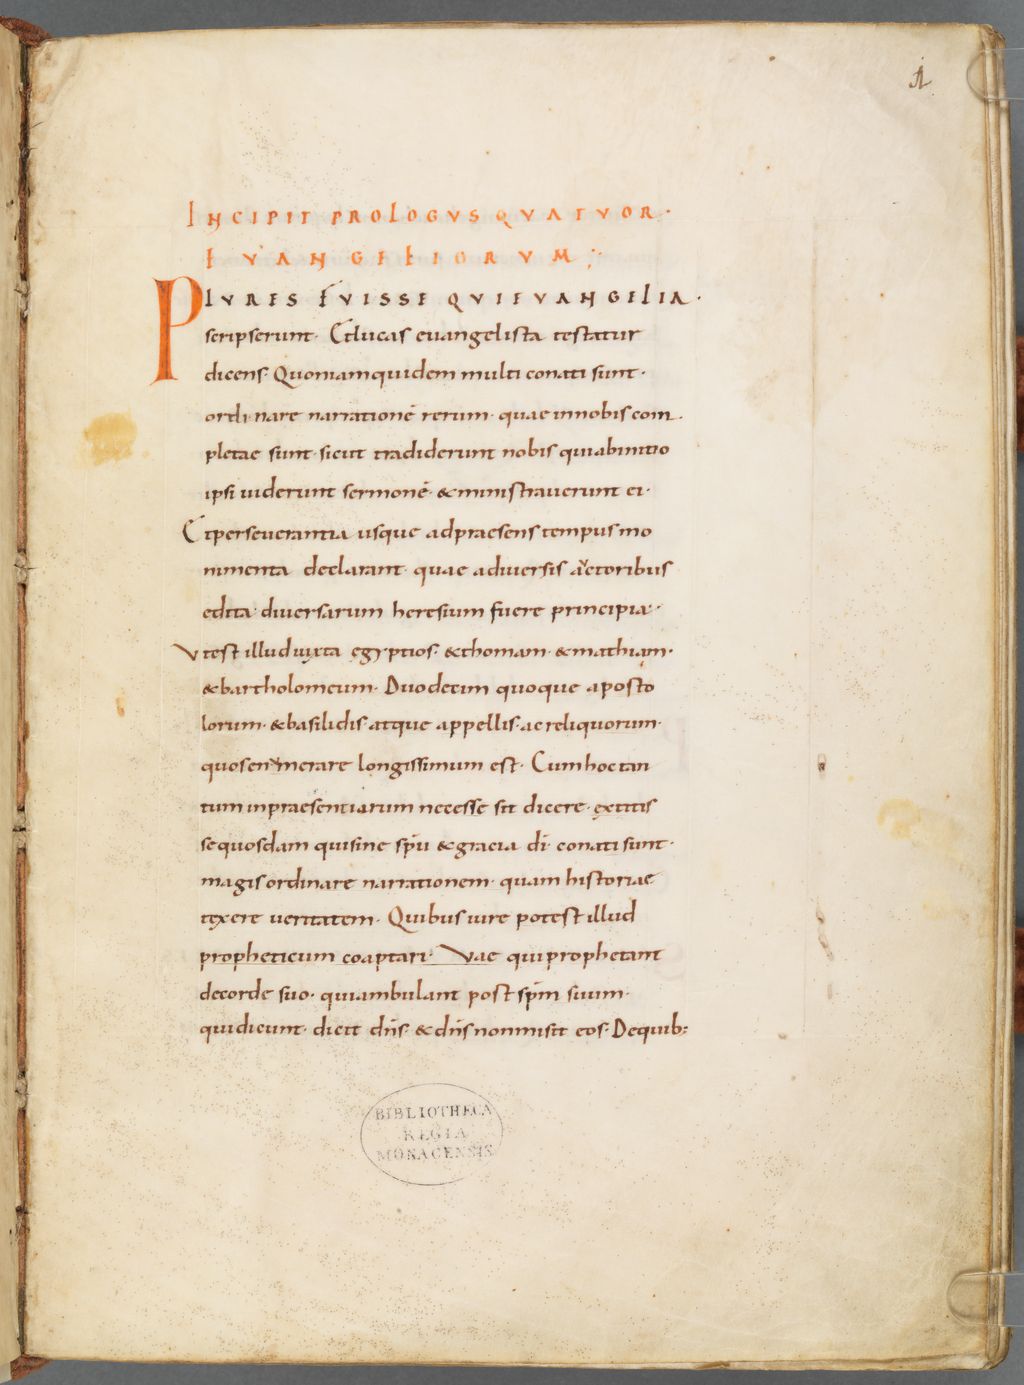 1
INCIPIT PROLOGVS QVATVOR·
EVANGELIORVM
PLVRES FVISSE QVI EVANGELIA·
scripserunt· Et lucas euangelista testatur
dicens· Quoniam quidem multi conati sunt·
ordinare narrationē rerum· quae in nobis com
pletae sunt· sicut tradiderunt nobis qui ab initio
ipsi uiderunt sermonē· & ministrauerunt ei·
Et perseuerantia usque ad praesens tempus mo
nimenta declarant· quae a diuersis auctoribus
edita· diuersarum heresium fuere principia·
Vt est illud iuxta egyptios· & thomam· & mathiam·
& bartholomeum· Duodecim quoque aposto
lorum· & basilidis atque appellis· ac reliquorum·
quos enumerare longissimum est· Cum hoc tan
tum in praesentiarum necesse sit dicere· extitis
se quosdam qui sine sp̄u & gracia dī conati sunt·
magis ordinare narrationem· quam historiae
texere ueritatem· Quibus iure potest illud
propheticum coaptari· Vae qui prophetant
de corde suo· qui ambulant post sp̄m suum·
qui dicunt· dicit dn̄s· & dn̄s non misit eos· De quib:
BIBLIOTHECA
REGIA
MONACENSIS